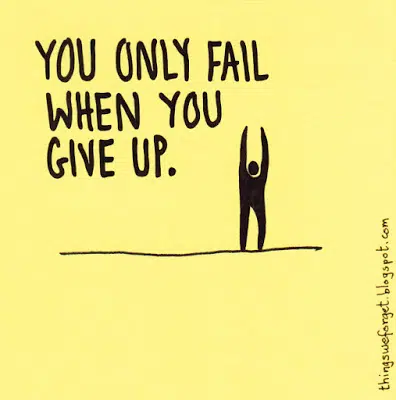 YOU ONLY FAIL
WHEN YOU
GIVE UP.
thingsweforget.blogspot.com